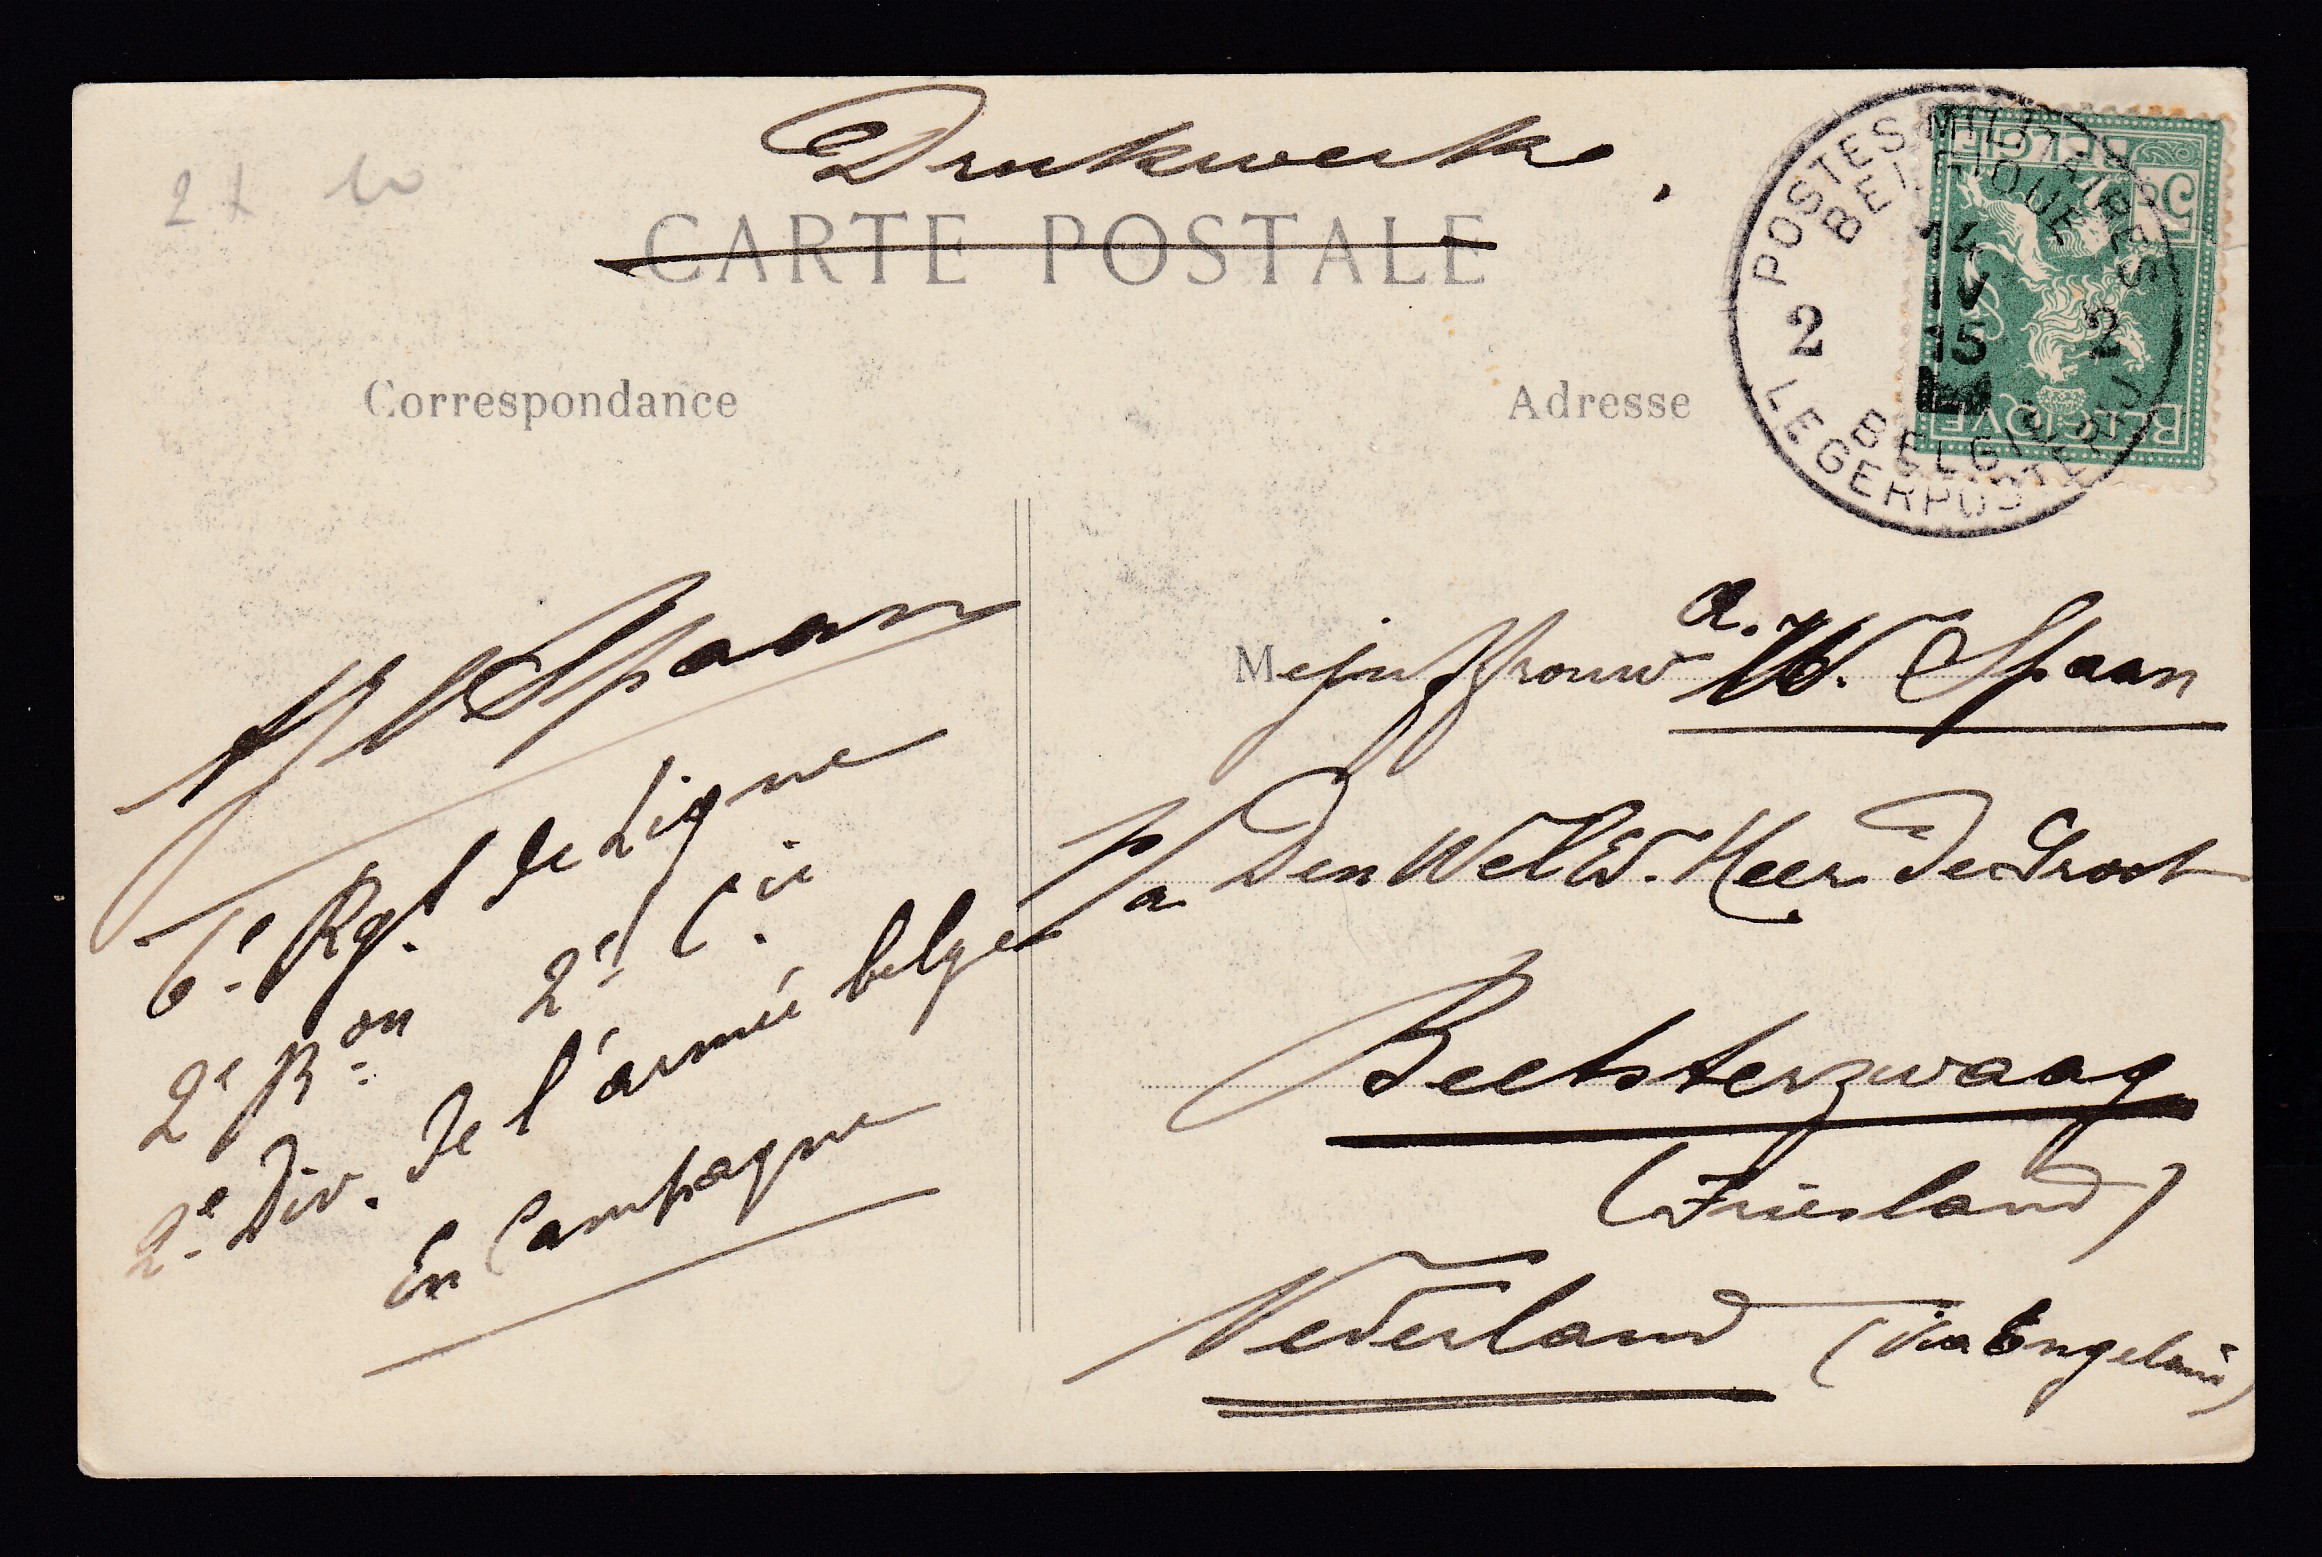 Drukwerk.
CARTE POSTALE
Correspondance
Adresse
POSTES MILITAIRES
BELGIQUE
14
IV
15
2 2
BELGIE
LEGERPOSTERIJ
BELGIË
5c
BELGIQVE
Spaan
6e Rgt. de Ligne
2e Bon 2e Cie
2e Div. de l'armée belge
En Campagne
Mejuffrouw A. W. Spaan
p/a Den WelEd. Heer De Groot
Beetsterzwaag
(Friesland)
Nederland (Via Engeland)